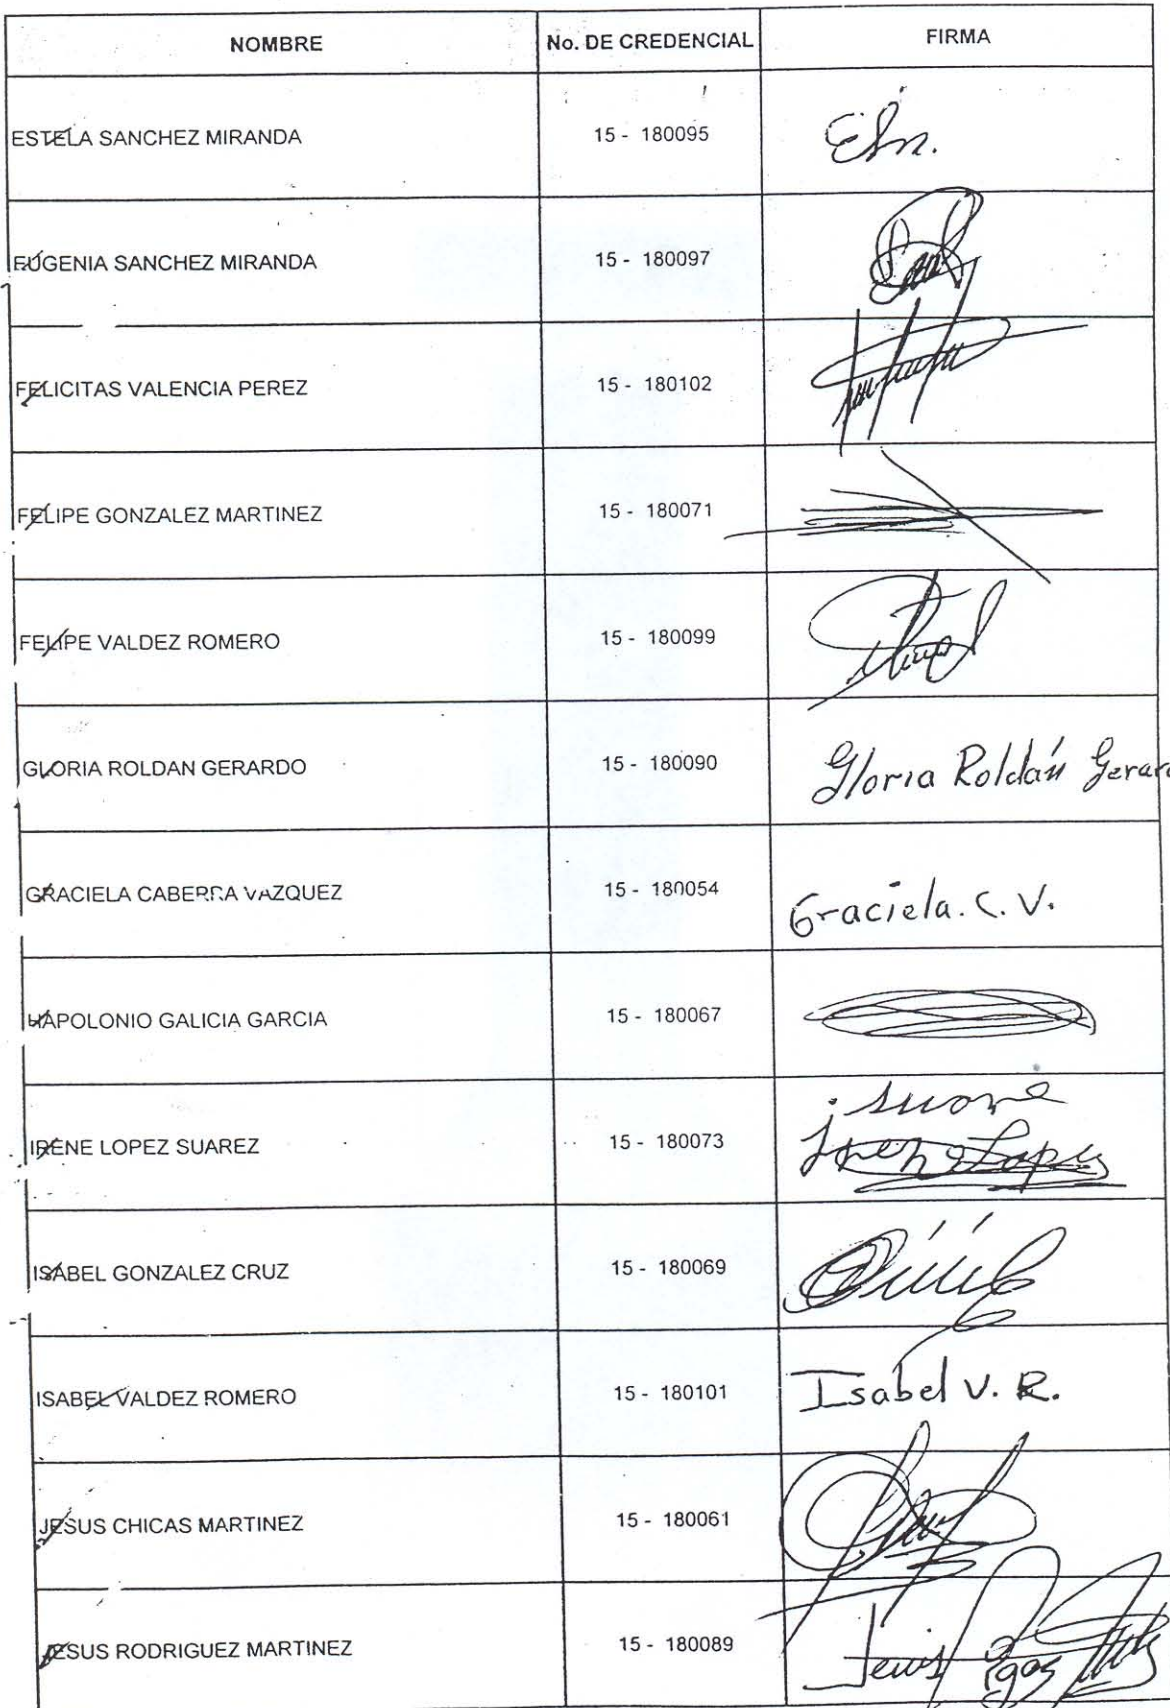 NOMBRE No. DE CREDENCIAL FIRMA
ESTELA SANCHEZ MIRANDA 15 - 180095
EUGENIA SANCHEZ MIRANDA 15 - 180097
FELICITAS VALENCIA PEREZ 15 - 180102
FELIPE GONZALEZ MARTINEZ 15 - 180071
FELIPE VALDEZ ROMERO 15 - 180099
GLORIA ROLDAN GERARDO 15 - 180090 Gloria Roldán Gerard
GRACIELA CABERRA VAZQUEZ 15 - 180054 Graciela. C. V.
HAPOLONIO GALICIA GARCIA 15 - 180067
IRENE LOPEZ SUAREZ 15 - 180073 Irene Lopes
ISABEL GONZALEZ CRUZ 15 - 180069
ISABEL VALDEZ ROMERO 15 - 180101 Isabel V. R.
JESUS CHICAS MARTINEZ 15 - 180061
JESUS RODRIGUEZ MARTINEZ 15 - 180089 Jesus